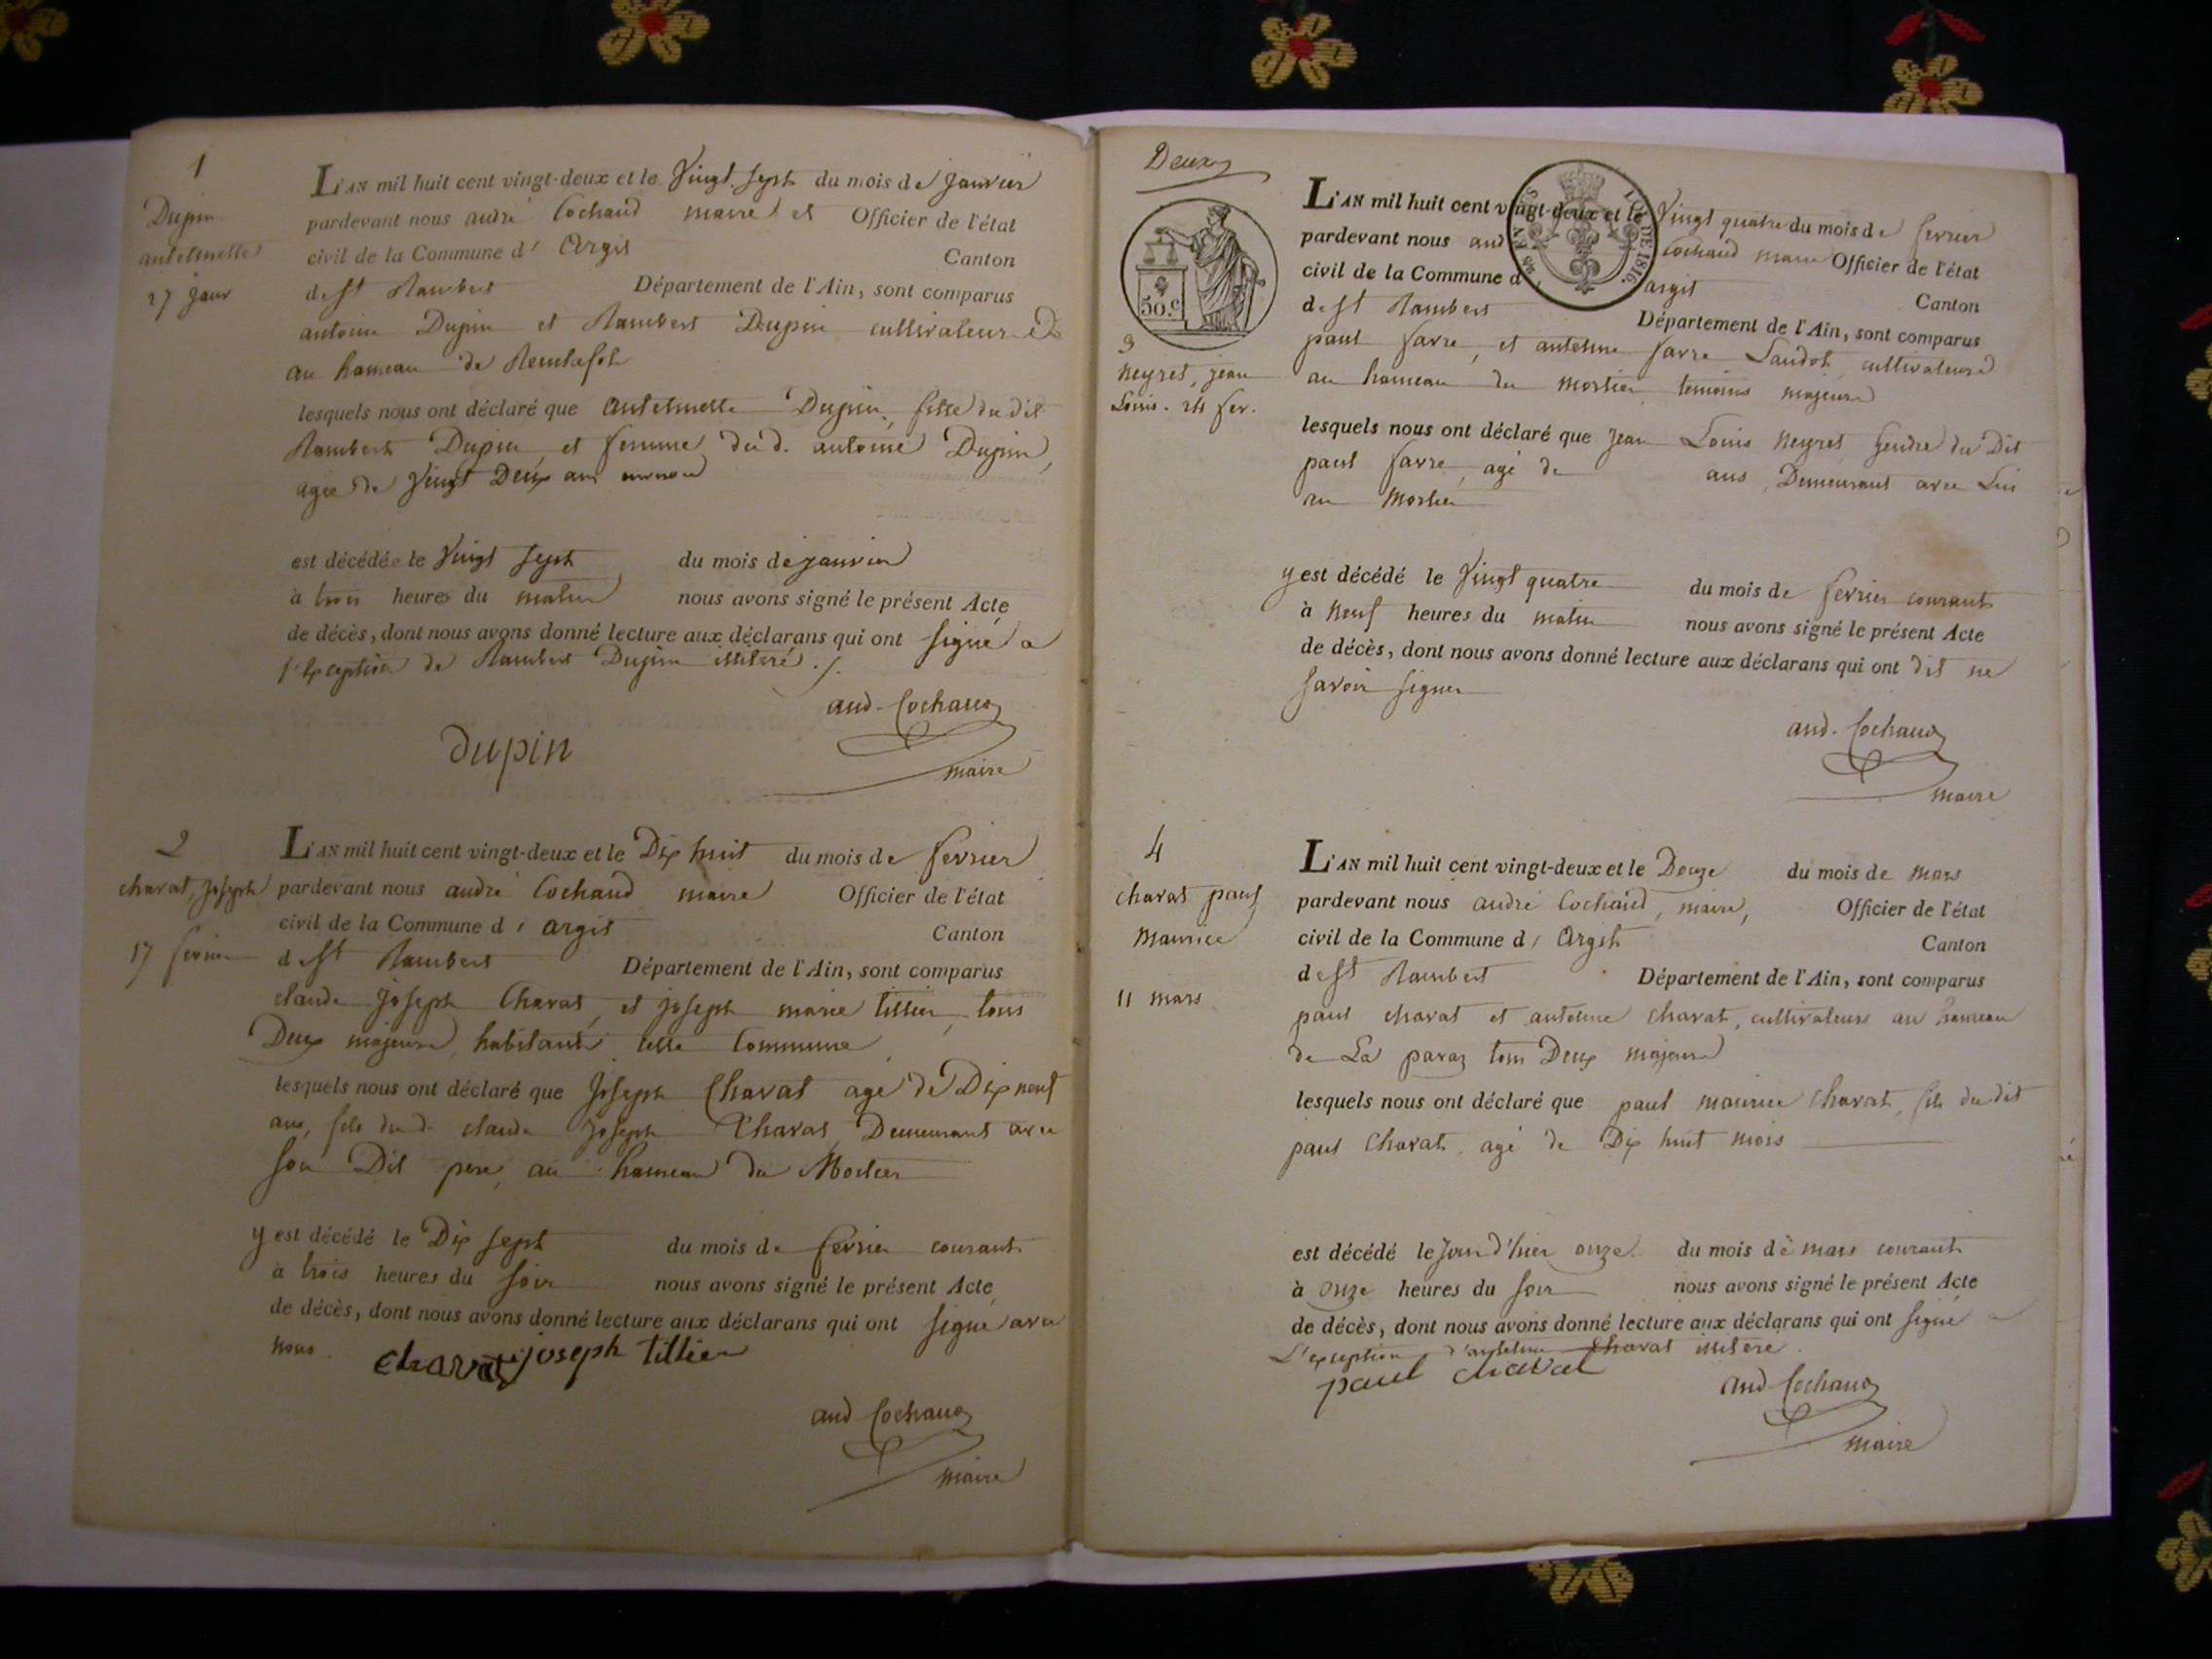 1
Dupin
antelmette
27 Janv
L'AN mil huit cent vingt-deux et le Vingt Sept du mois de Janvier
pardevant nous andré Cochaud maire et Officier de l'état
civil de la Commune d' Argis Canton
de St Rambert Département de l'Ain, sont comparus
antoine Dupin et Rambert Dupin cultivateurs
au hameau de
lesquels nous ont déclaré que antelmette Dupin, fille du dit
Rambert Dupin et femme du d. antoine Dupin,
agée de Vingt Deux ans environ
est décédée le Vingt Sept du mois de janvier
à trois heures du matin nous avons signé le présent Acte
de décès, dont nous avons donné lecture aux déclarans qui ont Signé a
l'exception de Rambert Dupin illiteré ./.
and. Cochaud
dupin
maire
2
charvat, Joseph
17 fevrier
L'AN mil huit cent vingt-deux et le Dix huit du mois de fevrier
pardevant nous andré Cochaud maire Officier de l'état
civil de la Commune d' argis Canton
de St Rambert Département de l'Ain, sont comparus
claude Joseph Charvat, et joseph marie tillier, tous
Deux majeurs, habitants Commune
lesquels nous ont déclaré que Joseph Charvat agé de Dix neuf
ans, fils du d. claude Joseph Charvat Demeurant avec
Son Dit pere, au hameau du Mortier
y est décédé le Dix Sept du mois de fevrier courant
à trois heures du Soir nous avons signé le présent Acte
de décès, dont nous avons donné lecture aux déclarans qui ont Signé avec
nous.
charvat joseph tillier
and Cochaud
maire
Deux
50.c
TIMB. EN SUS
LOI DE 1816
3
neyret, jean
Louis. 24 fev.
L'AN mil huit cent vingt-deux et le Vingt quatre du mois de fevrier
pardevant nous and Cochaud maire Officier de l'état
civil de la Commune d' argis Canton
de St Rambert Département de l'Ain, sont comparus
paul favre, et antelme favre Landot, cultivateurs
au hameau du mortier temoins majeurs
lesquels nous ont déclaré que Jean Louis neyret, gendre du Dit
paul favre, agé de ans, Demeurant avec Lui
au Mortier
y est décédé le Vingt quatre du mois de fevrier courant
à Neuf heures du matin nous avons signé le présent Acte
de décès, dont nous avons donné lecture aux déclarans qui ont dit ne
Savoir Signer
and. Cochaud
maire
4
charvat paul
Maurice
11 mars
L'AN mil huit cent vingt-deux et le Douze du mois de mars
pardevant nous andré Cochaud, maire, Officier de l'état
civil de la Commune d' Argis Canton
de St Rambert Département de l'Ain, sont comparus
paul charvat et antelme charvat, cultivateurs au hameau
de La paraz tous Deux majeurs
lesquels nous ont déclaré que paul maurice Charvat, fils du dit
paul Charvat, agé de Dix huit mois
est décédé le Jour d'hier onze du mois de mars courant
à Onze heures du Soir nous avons signé le présent Acte
de décès, dont nous avons donné lecture aux déclarans qui ont Signé a
L'exception d'antelme Charvat illiteré.
paul charvat
and Cochaud
maire